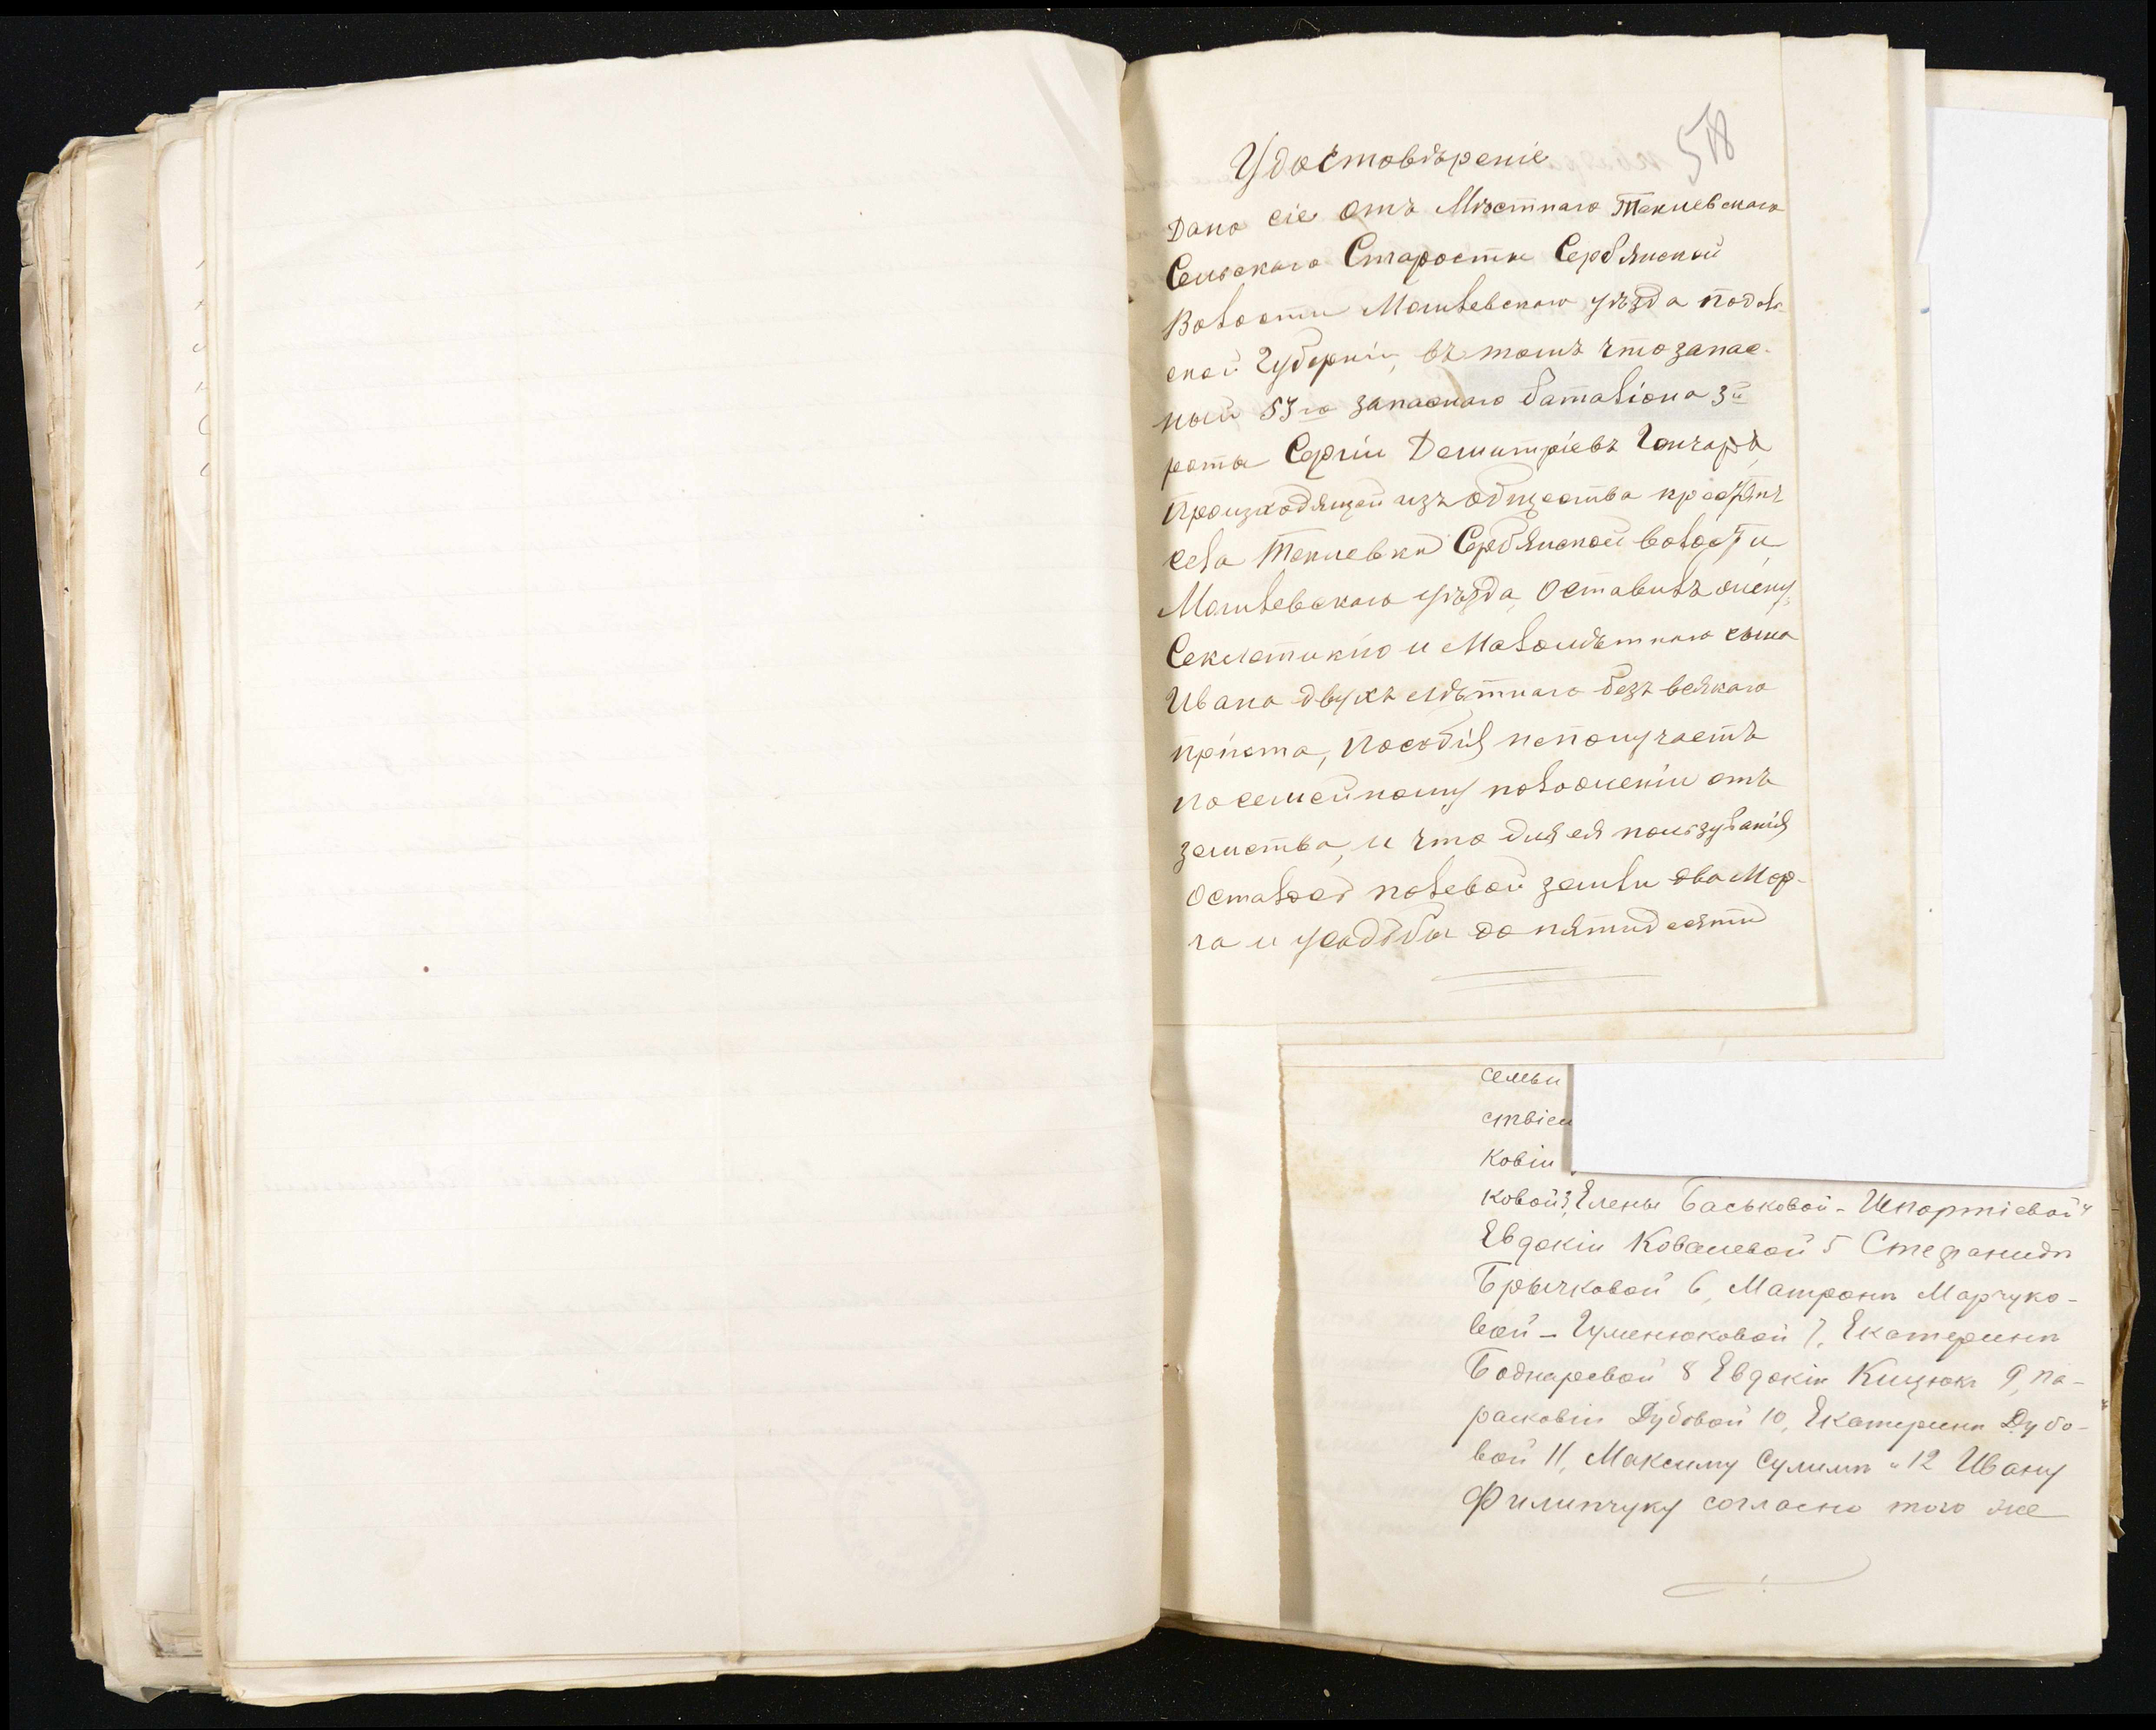 518
Удостовѣреніе
Дано сіе отъ Мѣстнаго Теклевскаго
Сельскаго Старосты Серебрянской
Волости Могилевскаго уѣзда Подоль-
ской Губерніи, въ томъ что запас-
ный 57го запаснаго баталіона 3й
роты Сергій Демитріевъ Гончаръ,
Произходящей изъ общества крестянъ
села Теклевки Серебянской волости
Могилевскаго уѣзда, оставилъ жену
Секлетикію и Малолѣтнаго сына
Ивана двухъ лѣтнаго безъ всякаго
пріюта, Пособія неполучаетъ
по семейному положеніи отъ
земства, и что для ея пользуванія
осталось полевой земли два Мор-
га и усадьбы до пятидесяти
семьи
ствіем
ковіи
ковой 3, Елены Баськовой - Шпортіевой 4
Евдокіи Ковалевой 5 Стефаниды
Брычковой 6, Матроны Марчуко-
вой - Гуменюковой 7, Екатерины
Боднаревой 8 Евдокіи Кицюкъ 9, Па-
расковіи Дубовой 10, Екатерины Дубо-
вой 11, Максиму Сулимѣ и 12 Ивану
Филипчуку согласно того же